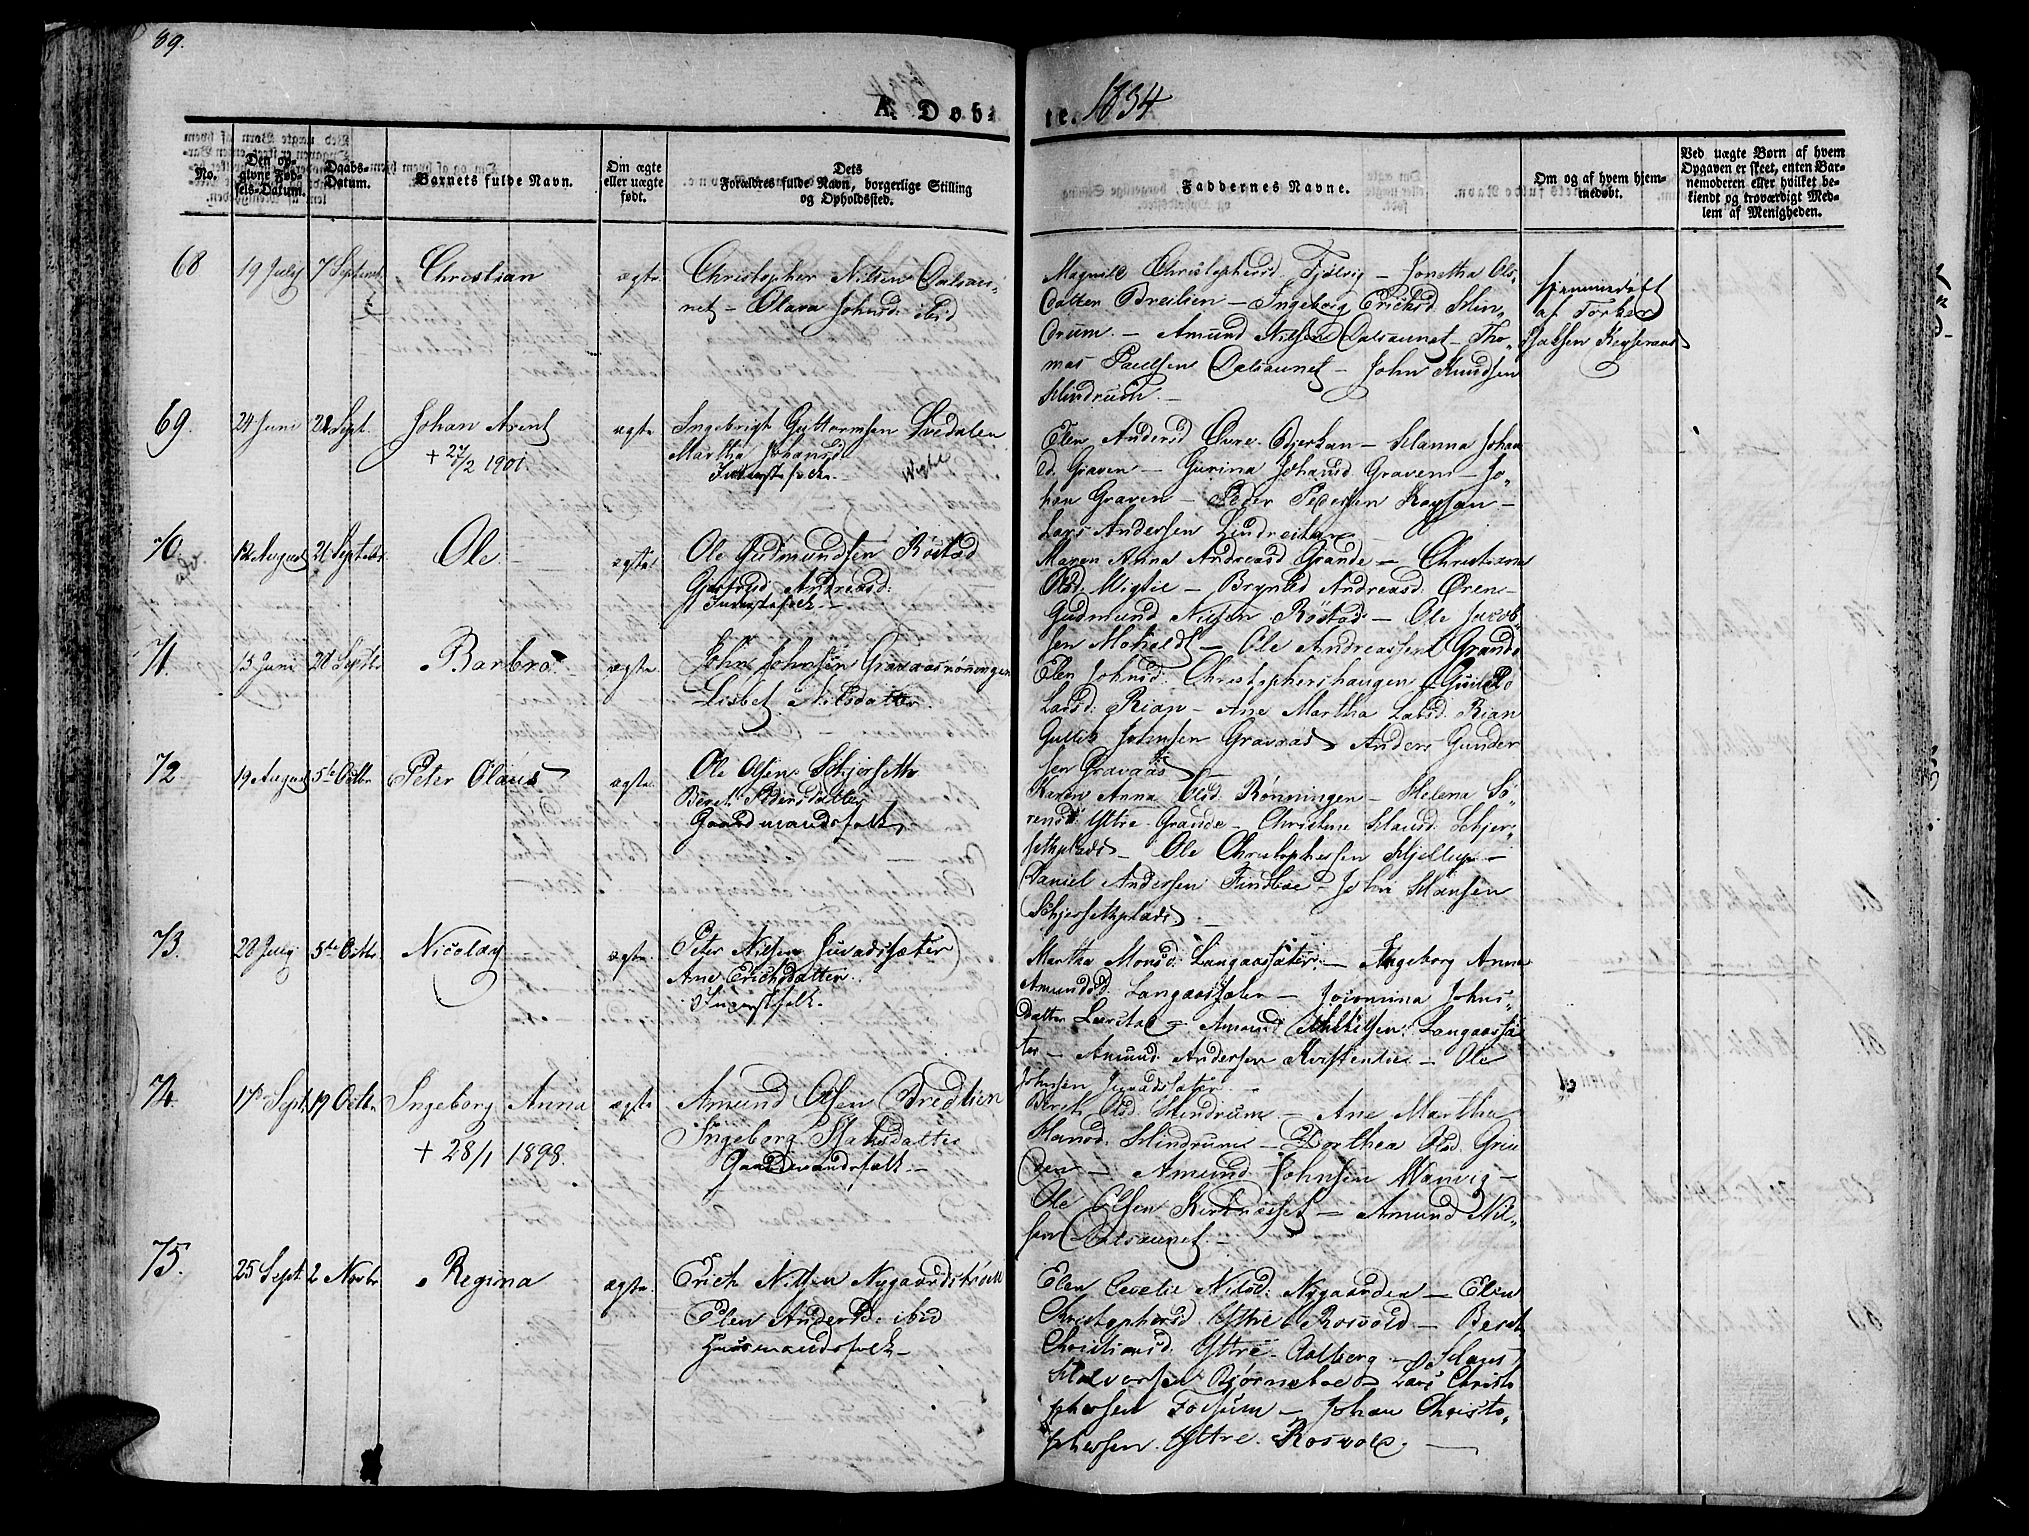 89.
A. Døbte. 1834
No.
Den opgivne Fødsels-Datum.
Daabs-Datum.
Barnets fulde Navn.
Om ægte eller uægte født.
Dets Forældres fulde Navn, borgerlige Stilling og Opholdssted.
Faddernes Navne.
Om og af hvem hjemmedøbt.
Ved uægte Børn af hvem Opgaven er skeet, enten Barnemoderen eller hvilket bekiendt og troværdigt Medlem af Menigheden.
68
19 July
7 Septemb.
Christian
ægte
Christopher Nilsen Dalsau-
net - Olava Johnsd: ibid
Magnild Christophersd. Fjølvig - Jonetha Ols-
datter Breilien - Ingeborg Erichsd. Hin-
drum - Amund Nilsen Dalsaunet - Tho-
mas Paulsen Dalsaunet - John Knudsen
Hindrum -
hjemmedøbt
af Torker
69.
24 Juni
21 Sept.
Johan Arent
+ 27/2 1901
ægte
Ingebrigt Guttormsen Svedalen
Martha Johansd
Inderstfolk -
Elen Andersd Øvre Bjerkan - Hanna Johan
sd. Graven - Gurina Johansd Graven - Jo-
han Graven - Peder Pedersen
Lars Andersen
70.
12 August
21 Septebr
Ole -
ægte
Ole Gudmundsen Røstad
Gjertrud Andreasd:
Inderstfolk -
Maren Anna Andreasd Grande - Christiana
Olsd. Migtie - Brynild Andreasd Øren -
Gudmund Nilsen Røstad - Ole Jacob-
sen - Ole Andreassen Grande
71.
15 Juni
28 Septbr
Barbro
ægte
John Johnsen Gravaasrønningen
Lisbet Nilsdatter.
Elen Johnsd: Christophershaugen -
Larsd: Rian - Ane Martha Larsd. Rian
Gullik Johnsen Gravaas Anders Gunder
sen Gravaas -
72
19 August
5te Octbr
Peter Olaus
ægte
Ole Olsen Schjerseth
Beret Pedersdatter
Gaardmandsfolk -
Karen Anna Olsd. Rønningen - Helena Sø-
rensd: Ytre Grande - Christine Hansd. Schjer-
sethplads - Ole Christophersen Kjellup -
Daniel Andersen Findboe - John Hansen
Schjersethplads. -
73.
20 July
5te Octbr.
Nicolay -
ægte.
Peter Nilsen Juvadsæter
Ane Erichsdatter.
Inderstfolk.
Martha Monsd: Langaassæter. - Ingeborg Anna
Amundsd. Langaassæter - Johns-
datter Leerstad - Amund Langaassæ
ter - Amund Andersen - Ole
Johnsen Juvadsæter -
74.
17 Sept.
19 Octbr
Ingeborg Anna
+ 28/1 1898.
ægte
Amund Olsen Bredlien
Ingeborg Hansdatter
Gaardmandsfolk. -
Beret Olsd. Hindrum - Ane Martha
Hansd: Hindrum - Dorthea Olsd. Grü
den - Amund Johnsen Manvig -
Ole Olsen - Amund Nil-
sen Dalsaunet. -
75.
25 Sept.
2 Novbr
Regina
ægte.
Erich Nilsen Nygaardstrøen
Elen Andersd. ibid
Huusmandsfolk -
Elen Cecelie Nilsd: Nygaarden - Elen
Christophersd. Yttre Rosvold - Beret
Christiansd. Yttre Aalberg - Hans
Halvorsen Bjørneboe - Lars Christo
phersen Forsum - Johan Christo-
phersen Yttre Rosvold. -